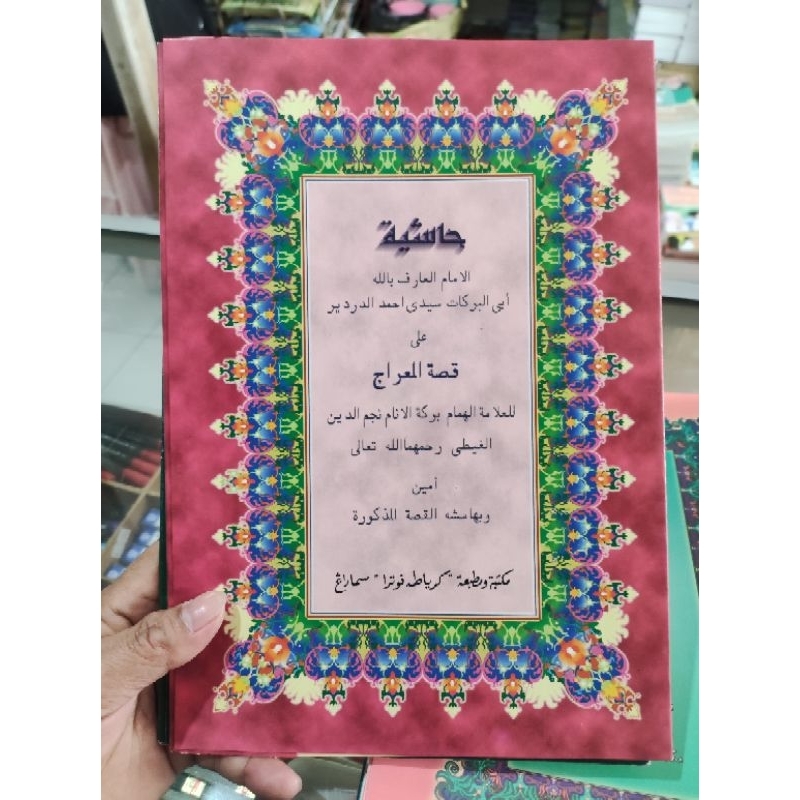 حاشية
الامام العارف بالله
أبى البركات سيدى احمد الدردير
على
قصة المعراج
للعلامة الهمام بركة الانام نجم الدين
الغيطى رحمهماالله تعالى
أمين
وبهامشه القصة المذكورة
مكتبة ومطبعة "كرياطه فوترا" سماراڠ